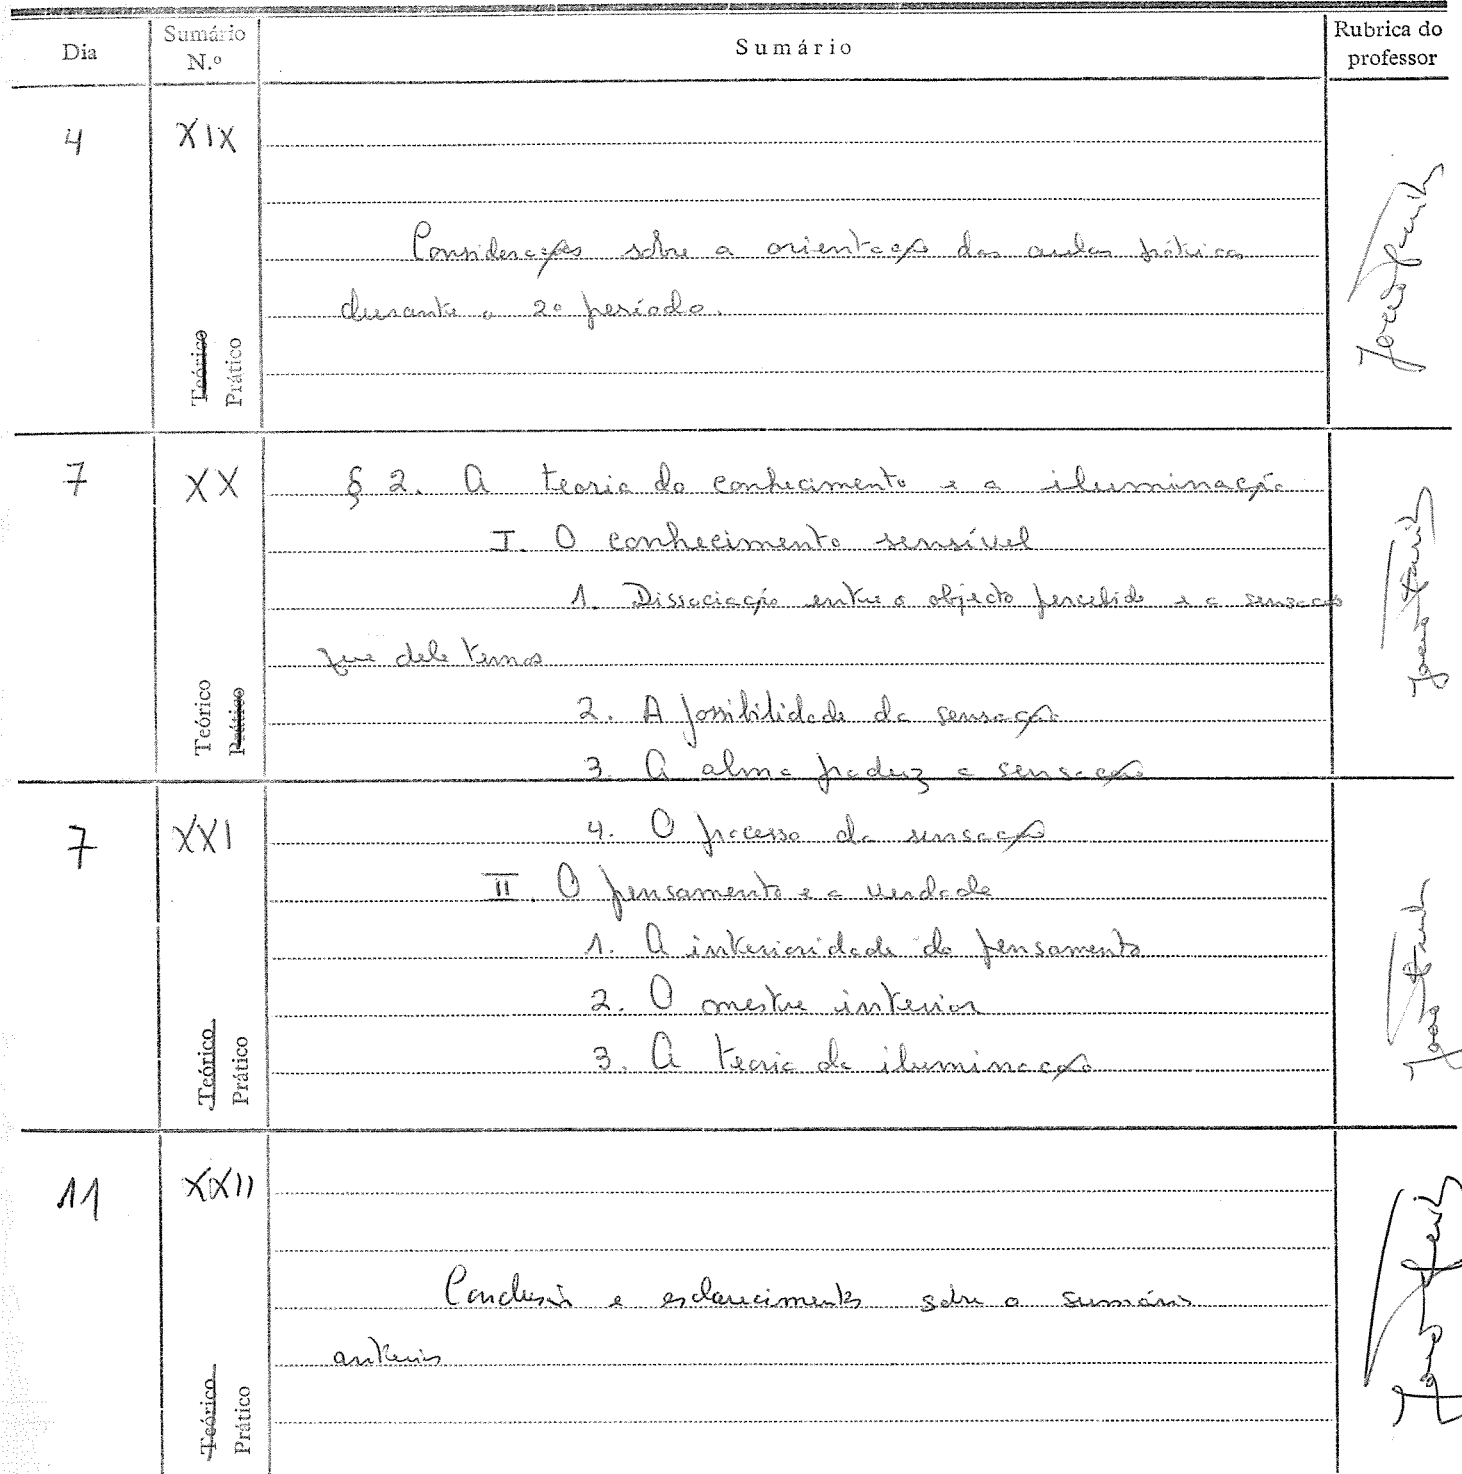 Dia
Sumário
N.º
Sumário
Rubrica do
professor
4
XIX
Considerações sobre a orientação das aulas práticas
durante o 2º período.
Teórico
Prático
7
XX
§ 2. A teoria do conhecimento e a iluminação
I. O conhecimento sensível
1. Dissociação entre o objecto percebido e a sensação
que dele temos
2. A possibilidade da sensação
3. A alma produz a sensação
Teórico
Prático
7
XXI
4. O processo da sensação
II. O pensamento e a verdade
1. A interioridade do pensamento
2. O mestre interior
3. A teoria da iluminação
Teórico
Prático
11
XXII
Conclusão e esclarecimentos sobre o sumário
anterior
Teórico
Prático